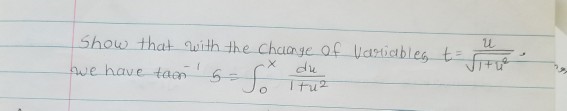 Show that with the change of Variables t = u/√(1+u²) .
we have tan⁻¹ s = ∫₀ˣ du/(1+u²)